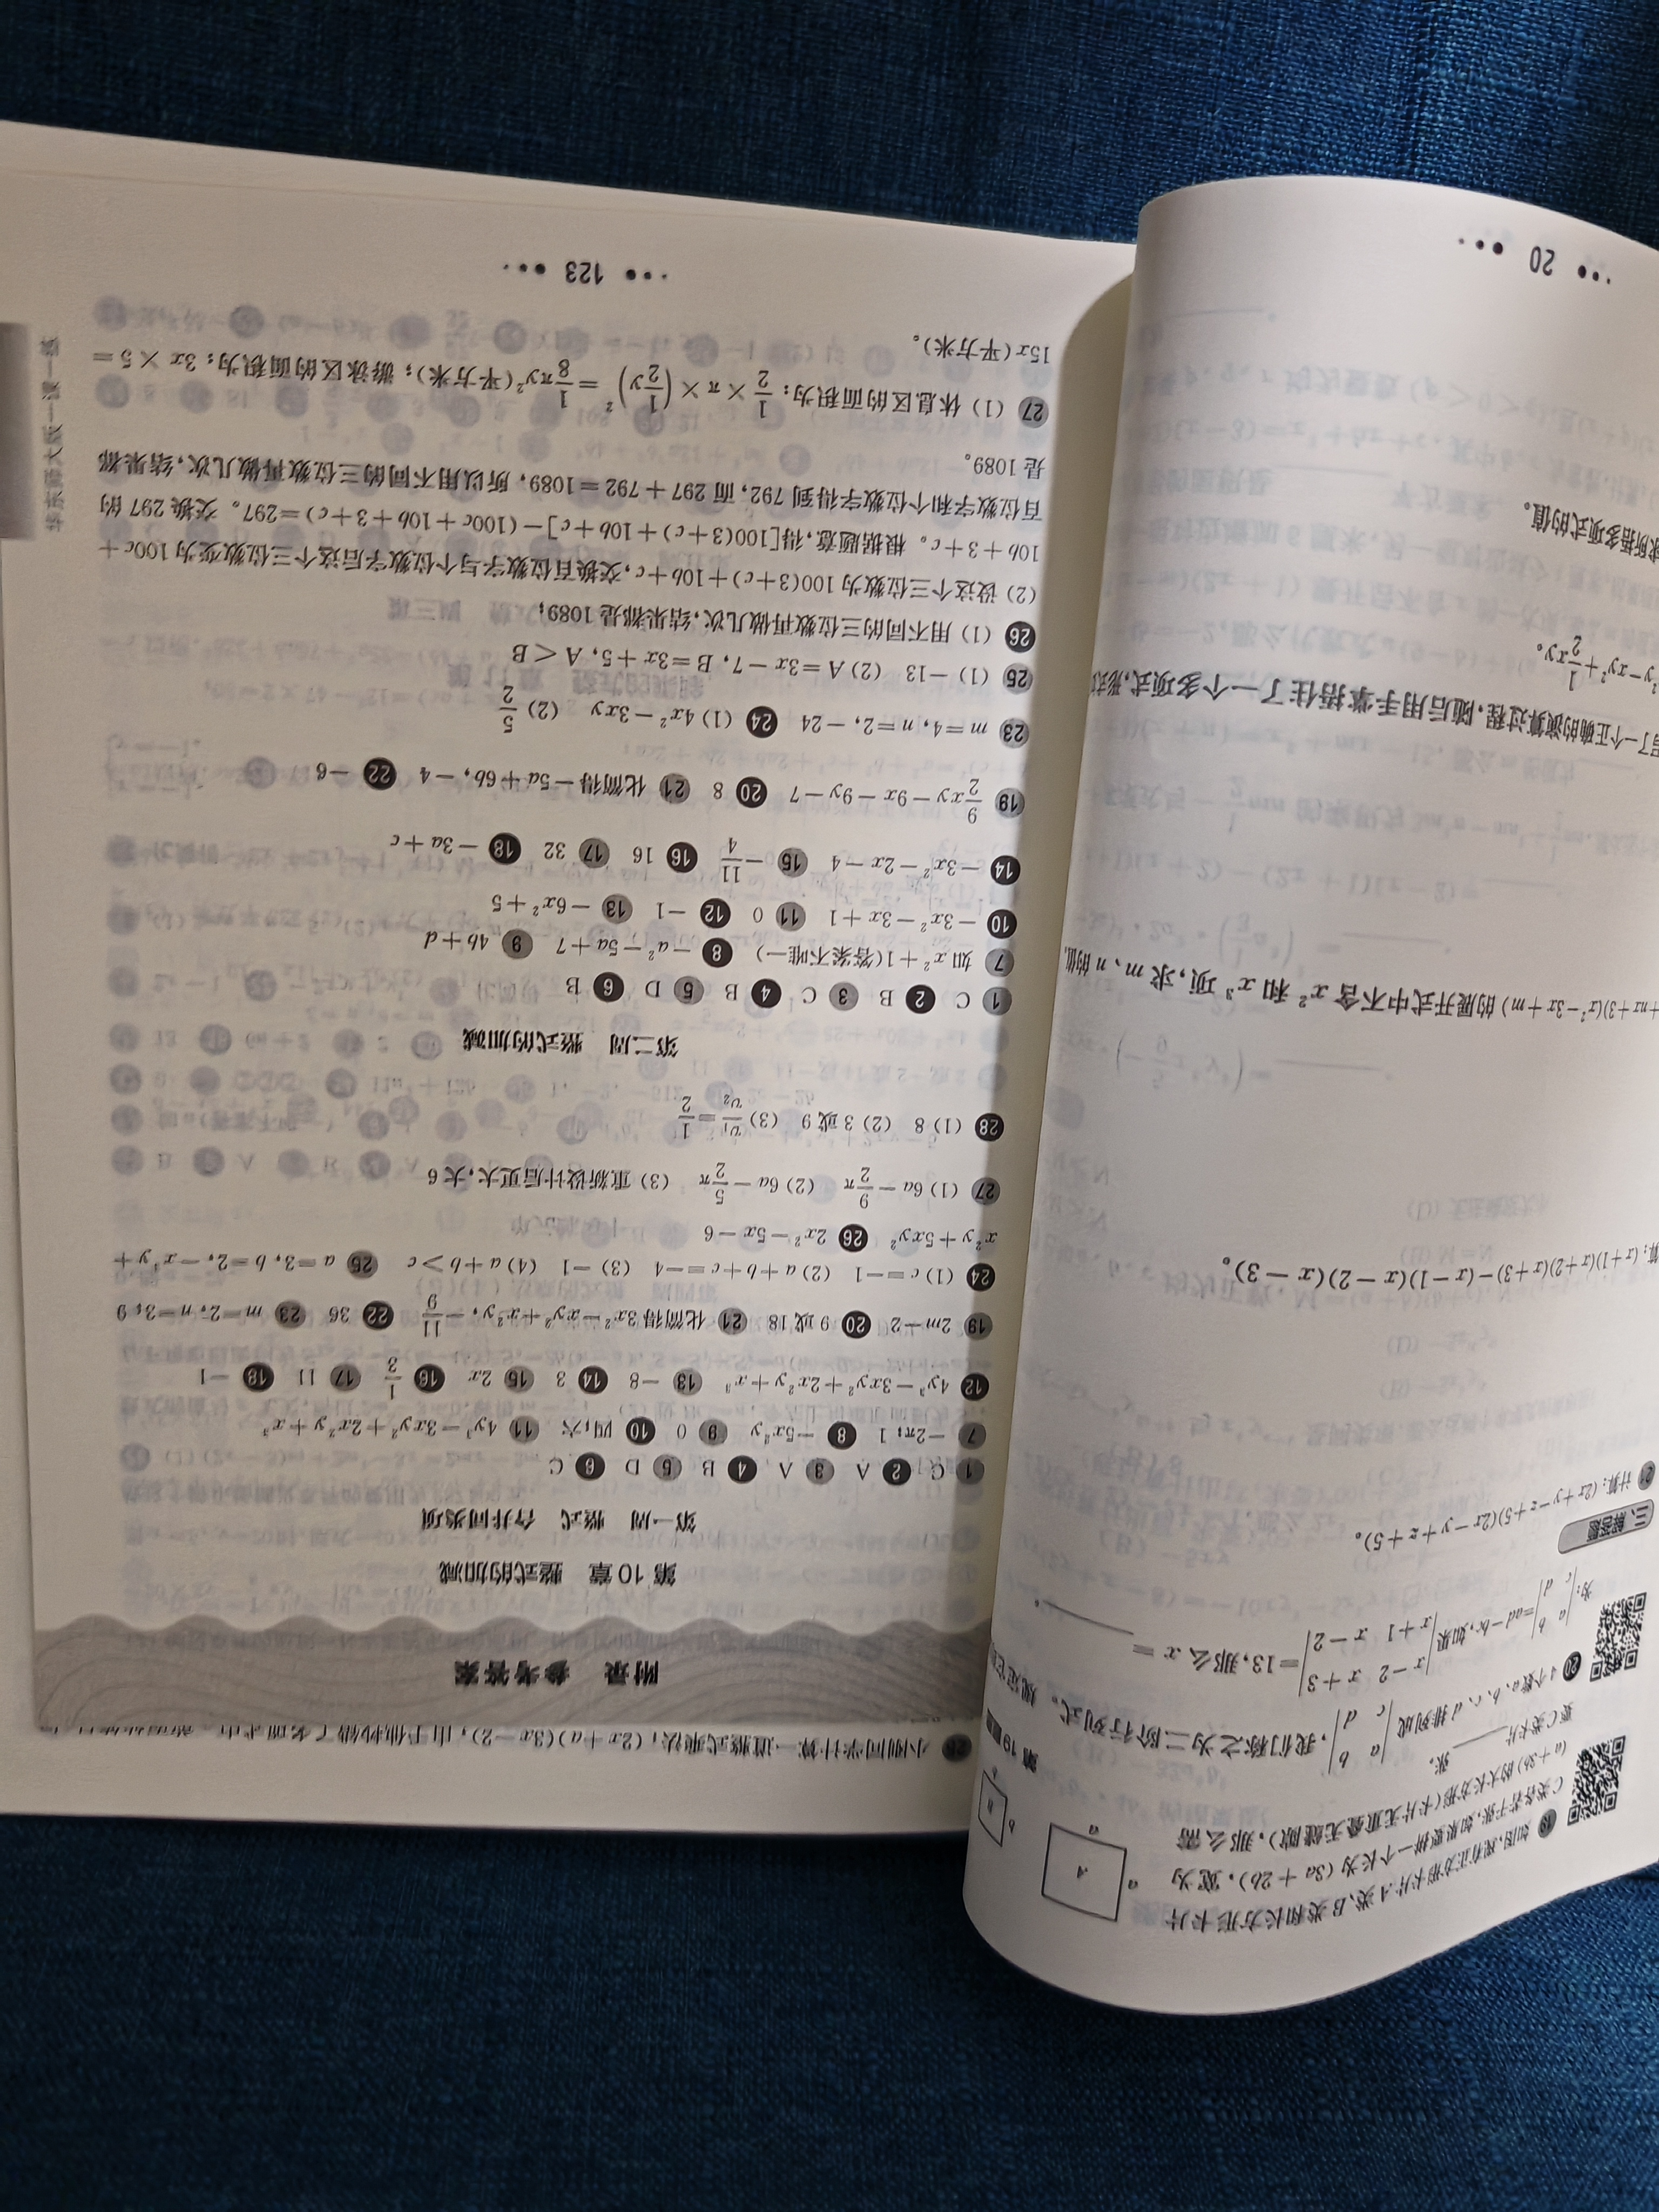 附录 参考答案
第 10 章 整式的加减
第一周 整式 合并同类项
1 C 2 A 3 A 4 B 5 D 6 C
7 −2π；1 8 −5x⁸y 9 0 10 四；六 11 4y³−3xy²+2x²y+x³
12 4y³−3xy²+2x²y+x³ 13 −8 14 3 15 2x 16 1/3 17 11 18 −1
19 2m−2 20 9 或 18 21 化简得 3x²−xy²+x²y，−11/9 22 36 23 m=2，n=3；9
24 (1) c=−1 (2) a+b+c=−4 (3) −1 (4) a+b>c 25 a=3，b=2，−x³y+
x²y+5xy² 26 2x²−5x−6
27 (1) 6a−9/2π (2) 6a−5/2π (3) 重新设计后更大，大 6
28 (1) 8 (2) 3 或 9 (3) v₁/v₂=1/2
第二周 整式的加减
1 C 2 B 3 C 4 B 5 D 6 B
7 如 x²+1(答案不唯一) 8 −a²−5a+7 9 4b+d
10 −3x²−3x+1 11 0 12 −1 13 −6x²+5
14 −3x²−2x−4 15 −11/4 16 16 17 32 18 −3a+c
19 9/2xy−9x−9y−7 20 8 21 化简得−5a+6b，−4 22 −6
23 m=4，n=2，−24 24 (1) 4x²−3xy (2) 5/2
25 (1) −13 (2) A=3x−7，B=3x+5，A<B
26 (1) 用不同的三位数再做几次，结果都是 1089；
(2) 设这个三位数为 100(3+c)+10b+c，交换百位数字与个位数字后这个三位数变为 100c+
10b+3+c。根据题意，得[100(3+c)+10b+c]−(100c+10b+3+c)=297。交换 297 的
百位数字和个位数字得到 792，而 297+792=1089，所以用不同的三位数再做几次，结果都
是 1089。
27 (1) 休息区的面积为：1/2×π×(1/2y)²=1/8πy²(平方米)；游泳区的面积为：3x×5=
15x(平方米)。
123
华东师大版一课一练
19 如图，现有正方形卡片 A 类、B 类和长方形卡片
C 类各若干张，如果要拼一个长为 (3a+2b)，宽为
(a+3b) 的大长方形(卡片无重叠无缝隙)，那么需
要 C 类卡片 ______ 张。
a
a
A
b
B
第 19 题
20 4 个数 a、b、c、d 排列成 |a b c d|，我们称之为二阶行列式。规定它
为：|a b c d|=ad−bc，如果|x−2 x+3 x+1 x−2|=13，那么 x = ______。
三、解答题
21 计算：(2x+y−z+5)(2x−y+z+5)。
算：(x+1)(x+2)(x+3)−(x−1)(x−2)(x−3)。
+nx+3)(x²−3x+m) 的展开式中不含 x² 和 x³ 项，求 m、n 的值。
写了一个正确的演算过程，随后用手掌捂住了一个多项式，形式
y−xy²+1/2xy。
求所捂多项式的值。
20